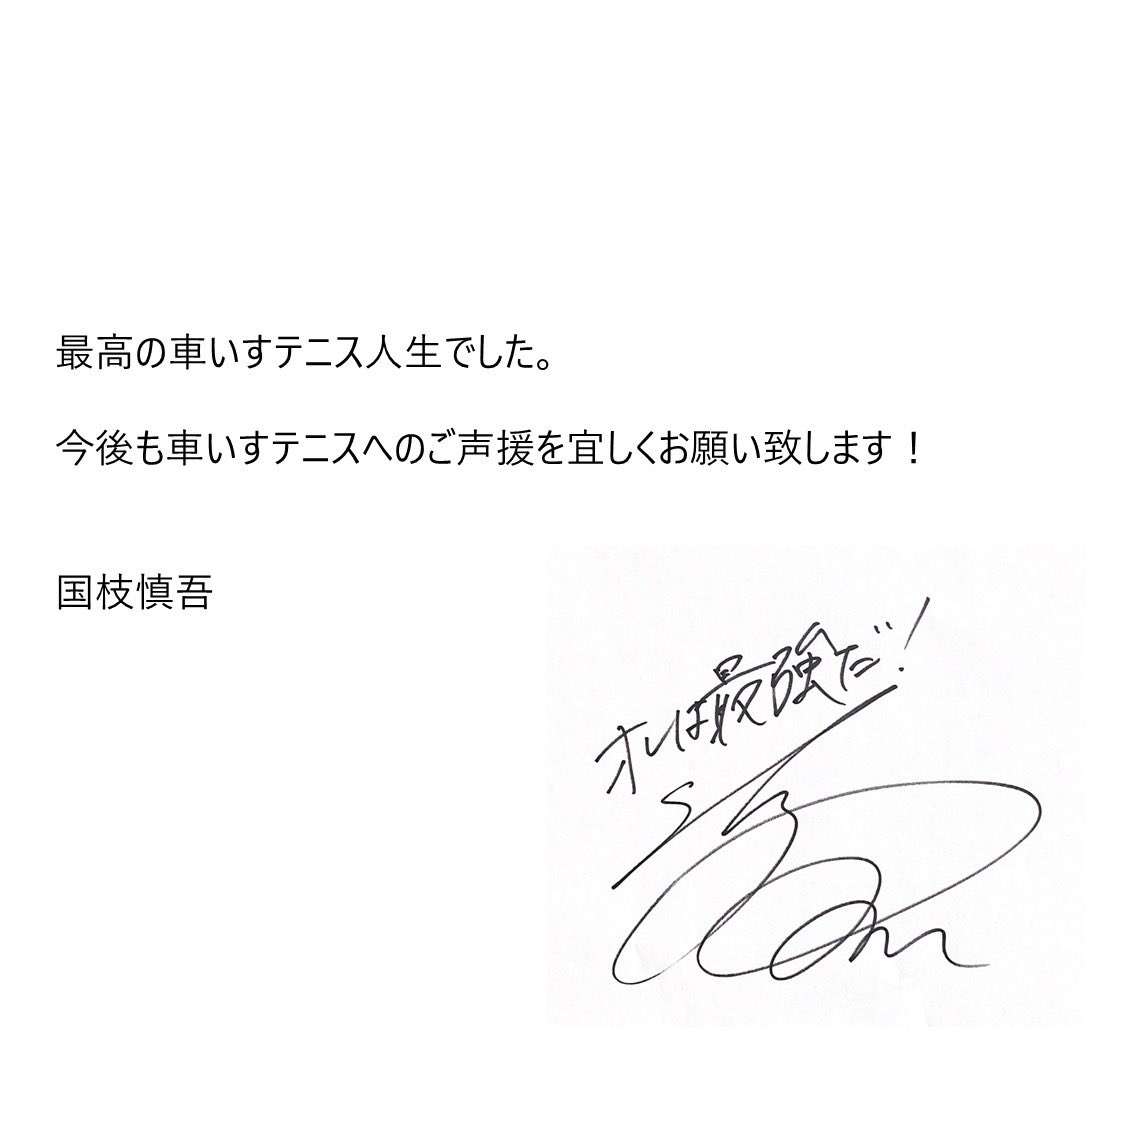 最高の車いすテニス人生でした。
今後も車いすテニスへのご声援を宜しくお願い致します！
国枝慎吾
オレは最強だ！